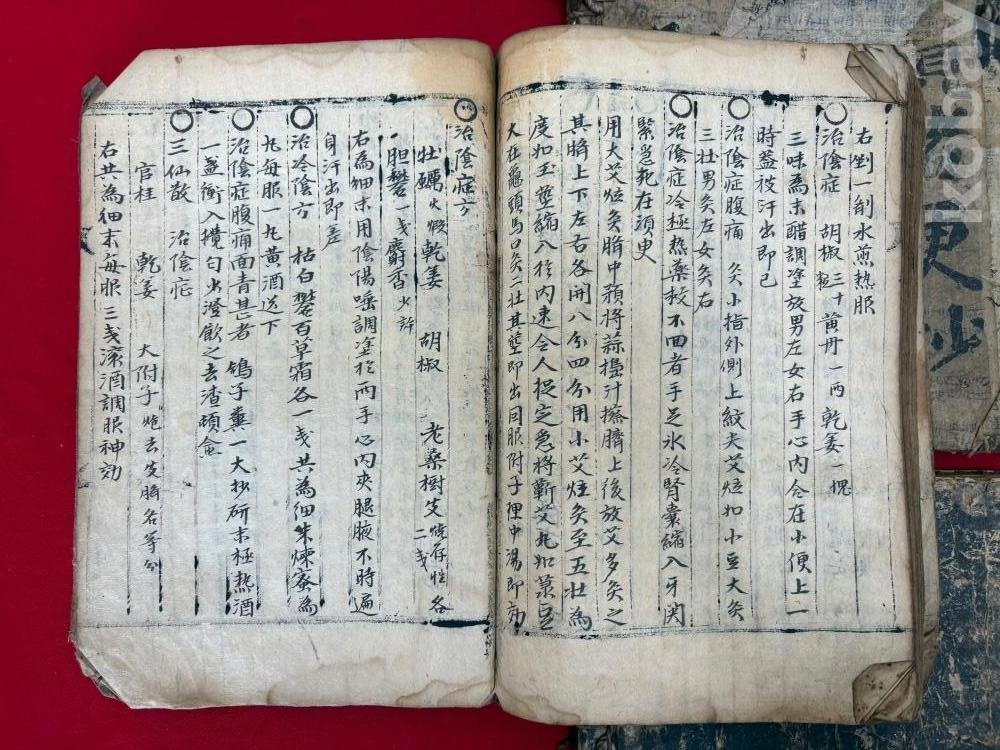 右剉一剤水煎熱服
○治陰症 胡椒三十粒 黄丹一両 乾姜一塊
三味為末醋調塗放男左女右手心內仝在小便上一
時蓋被汗出即已
○治陰症腹痛 灸小指外側上紋尖艾炷如小豆大灸
三壮男灸左女灸右
○治陰症冷極熱藥救不回者手足氷冷腎囊縮入牙関
緊急死在須臾
用大艾炷灸臍中預將蒜搗汁擦臍上後放艾多灸之
其臍上下左右各開八分四分用小艾炷灸至五壮為
度如玉莖縮入於內速令人捉定急將蘄艾丸如菉豆
大在龜頭馬口灸二壮其莖即出回服附子理中湯即効
○治陰症方
牡蠣火煅 乾姜 胡椒 老桑樹皮燒存性各二戔
胆礬一戔 麝香少許
右為細末用陰陽唾調塗於両手心內夾腿腋不時遍
自汗出即差
○治冷陰方 枯白礬百草霜各一戔共為細末煉蜜為
丸每服一丸黄酒送下
○治陰症腹痛面青甚者 鴿子糞一大抄研末極熱酒
一盏衝入攪勻少澄飲之去渣頓愈
○三仙散 治陰症
官桂 乾姜 大附子炮去皮臍各等分
右共為細末每服三戔滾酒調服神効
便抄
kobay